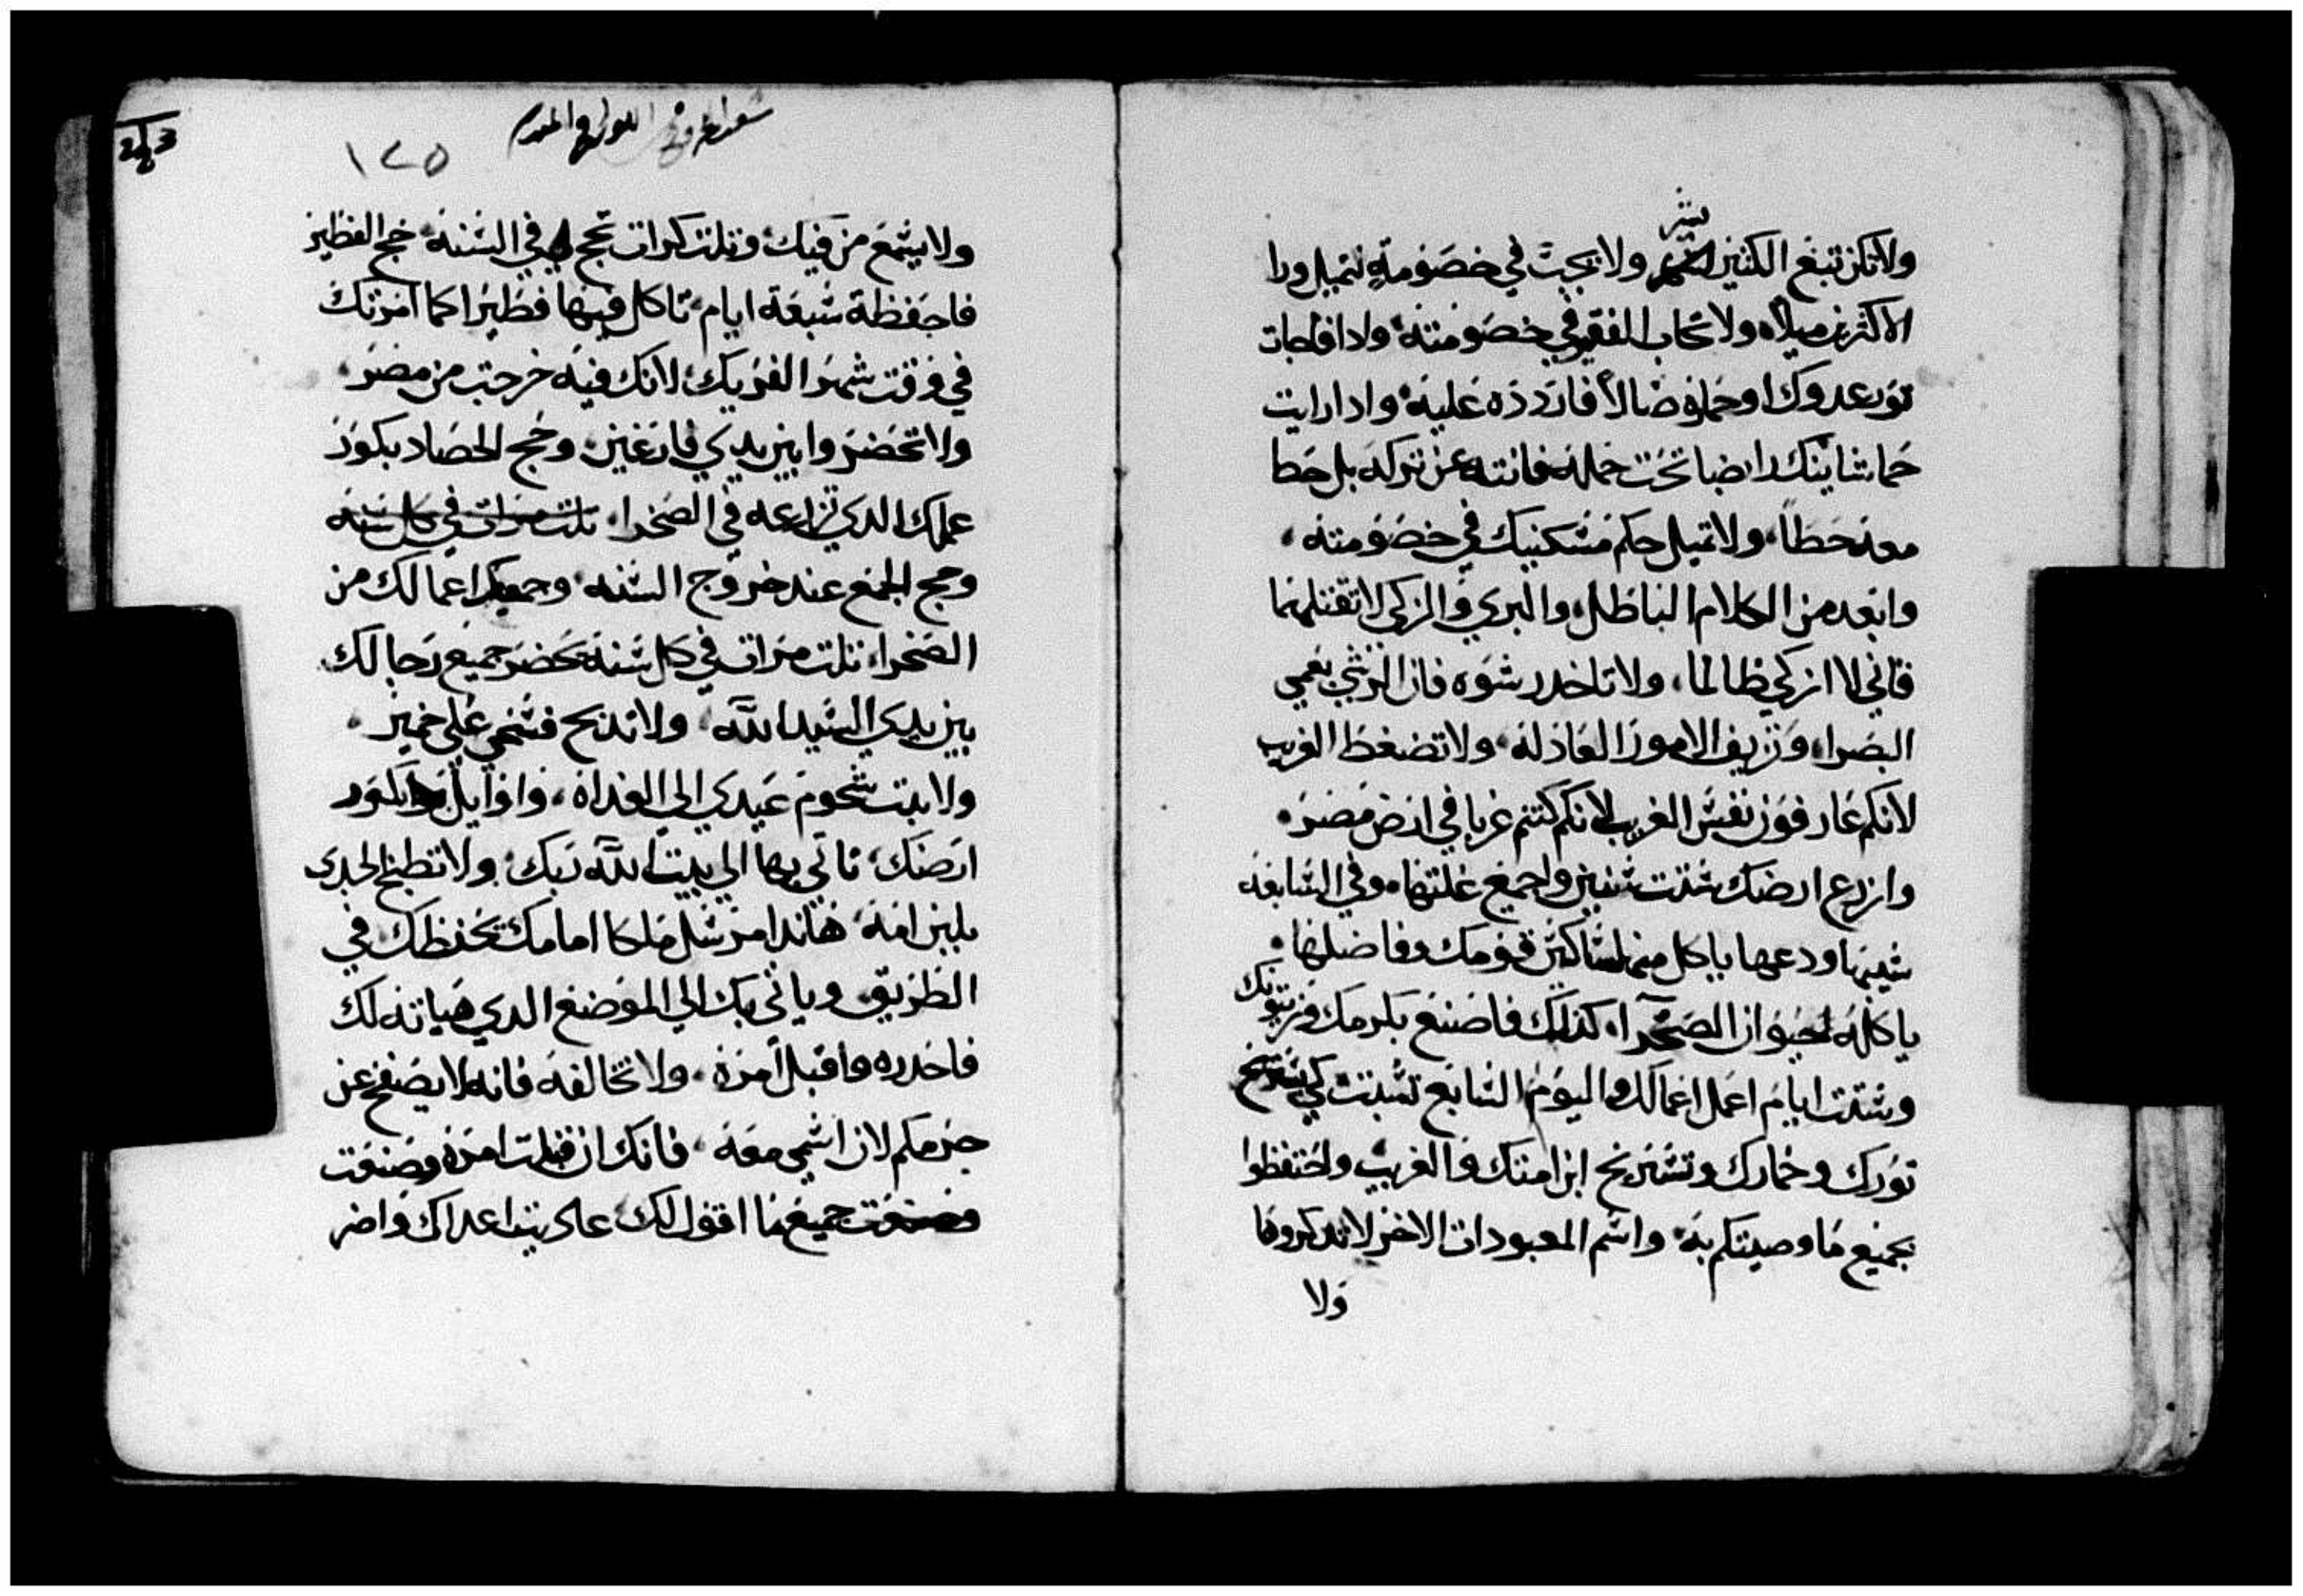 ولا تكن تبع الكثير بشر ولا تجيب في خصومة لتميل ورا
الاكثرين ميلاه ولا تحاب الفقير في خصومته ولدا فاجات
تور عدوك او حماره ضالاً فاردده عليه وادا رايت
حمار شانيك رابضا تحت حمله فانته عن تركه بل حطا
معه حطاً ولا تميل حكم مسكنيك في خصومته
وابعد من الكلام الباطل والبري والزكي لا تقتلهما
فاني لا ازكي ظالما ولا تاخد رشوه فان الرشي تعمي
البصرا وتزيف الامور العادله ولا تضغط الغريب
لانكم عارفون نفس الغريب لانكم كنتم غربا في ارض مصر
وازرع ارضك ستت سنين واجمع غلتها وفي السابعه
سيبها ودعها ياكل منها مساكين قومك وفاضلها
ياكله حيوان الصحرا كذلك فاصنع بكرمك وزيتونك
وستت ايام اعمل اعمالك واليوم السابع تسبت كي يستريح
تورك وحمارك وتستريح ابن امتك والغريب واحتفظوا
بجميع ما وصيتكم به واسم المعبودات الاخر لا تدكروها
ولا
١٢٥
ولا يسمع من فيك وتلت كرات تحج لي في السنه حج الفطير
فاحفظه سبعة ايام تاكل فيها فطيرا كما امرتك
في وقت شهر الفريك لانك فيه خرجت من مصر
ولا تحضروا بين يدي فارغين وحج الحصاد بكور
عملك الدي تزرعه في الصحرا تلت مرات في كل سنه
وحج الجمع عند خروج السنه وجمعك اعمالك من
الصحرا تلت مرات في كل سنه تحضر جميع رجالك
بين يدي السيد الله ولا تدبح فسحي على خمير
ولا يبت شحوم عيدي الى الغداه واوايل بكور
ارضك تاتي بها الي بيت الله ربك ولا تطبخ الجدي
بلبن امه هاندا مرسل ملاكا امامك يحفظك في
الطريق وياتي بك الي الموضع الدي هياته لك
فاحدره واقبل امره ولا تخالفه فانه لا يصفح عن
جرمكم لان اسمي معه فانك ان قبلت امره وصنعت
وصنعت جميع ما اقول لك عاديت اعداك واضر